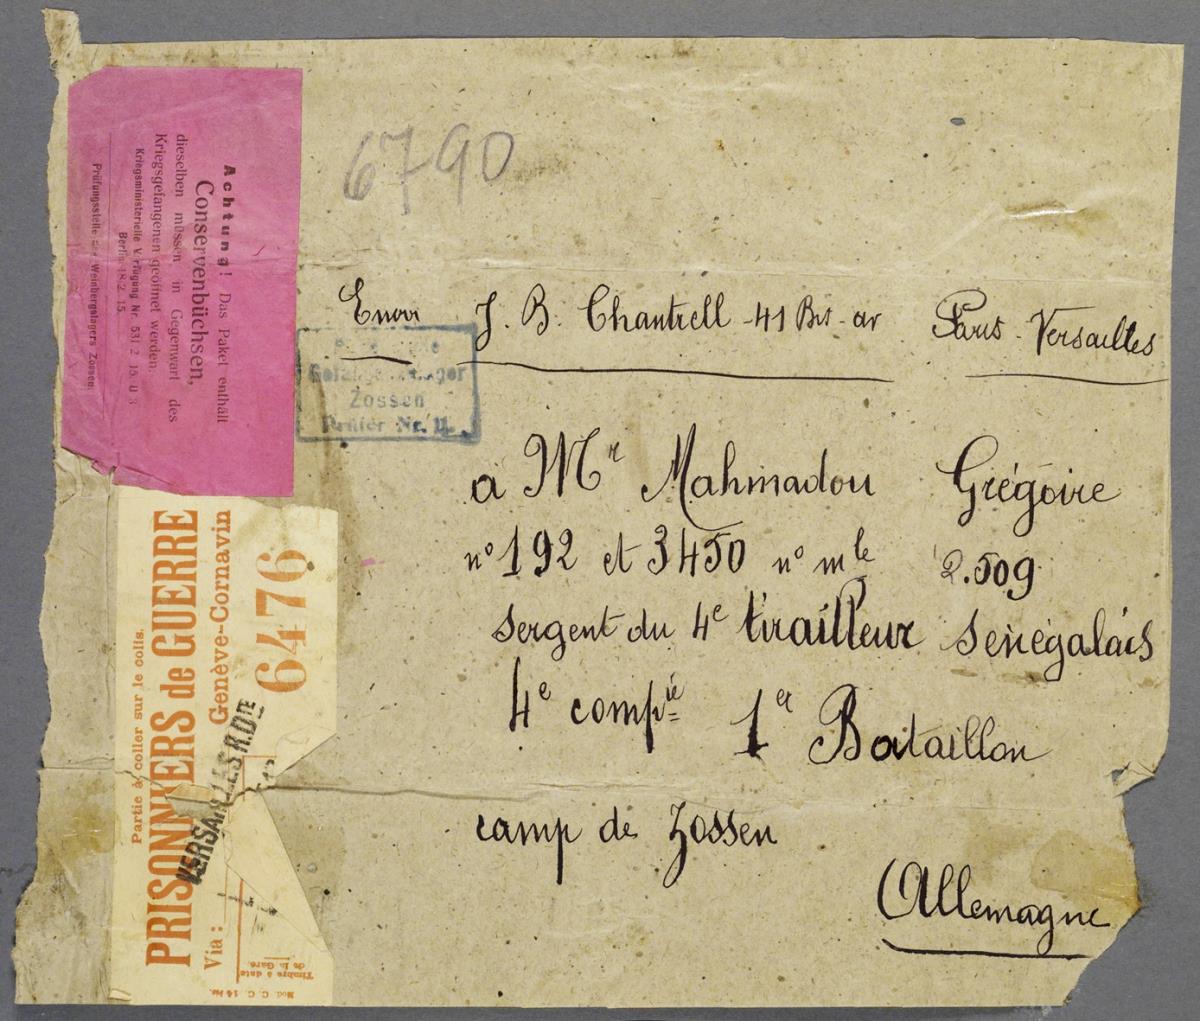 6790
Envoi J. B. Chantrell - 41 Bis - av Paris - Versailles
à Mr Mahmadou Grégoire
n° 192 et 3450 n° mle 2.509
sergent du 4e tirailleur sénégalais
4e compie 1er Bataillon
camp de Zossen
(Allemagne
Zossen
Achtung! Das Paket enthält
Conservenbüchsen,
dieselben müssen in Gegenwart des
Kriegsgefangenen geöffnet werden.
Kriegsministerielle Verfügung Nr. 531 2 15. U 3
Berlin 18 2. 15.
Prüfungsstelle des Weinbergslagers Zossen.
Partie à coller sur le colis.
PRISONNIERS de GUERRE
Genève-Cornavin
6476
VERSAILLES R.Dte
Via:
Timbre à date
de la Gare.